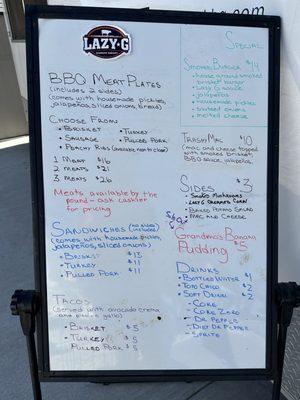 LAZY-G
BBQ MEAT PLATES
(includes 2 sides)
(comes with housemade pickles,
jalapeños, sliced onions, bread)
CHOOSE FROM
• BRISKET
• TURKEY
• SAUSAGE
• PULLED PORK
1 MEAT $16
2 MEATS $21
3 MEATS $26
Meats available by the
pound - ask cashier
for pricing
SANDWICHES (no sides included)
(comes with housemade pickles,
jalapeños, sliced onions)
• BRISKET $13
• TURKEY $11
• PULLED PORK $11
TACOS
(served with avocado crema
• BRISKET $5
• TURKEY $5
PULLED PORK $5
SPECIAL
SMOKED BURGER $14
• house ground smoked
brisket burger
• Lazy G sauce
• jalapeños
• pickles
• sauteed onions
• melted cheese
TRASHY MAC $10
(mac and cheese topped
with smoked brisket,
BBQ sauce, jalapeños)
SIDES $3
• LAZY G CREAMED CORN
• BAKED POTATO SALAD
• MAC AND CHEESE
Grandma's Banana
Pudding $5
DRINKS
• BOTTLED WATER $1
• TOPO CHICO $2
• SOFT DRINK $2
- COKE
- COKE ZERO
- DR. PEPPER
- DIET DR PEPPER
- SPRITE